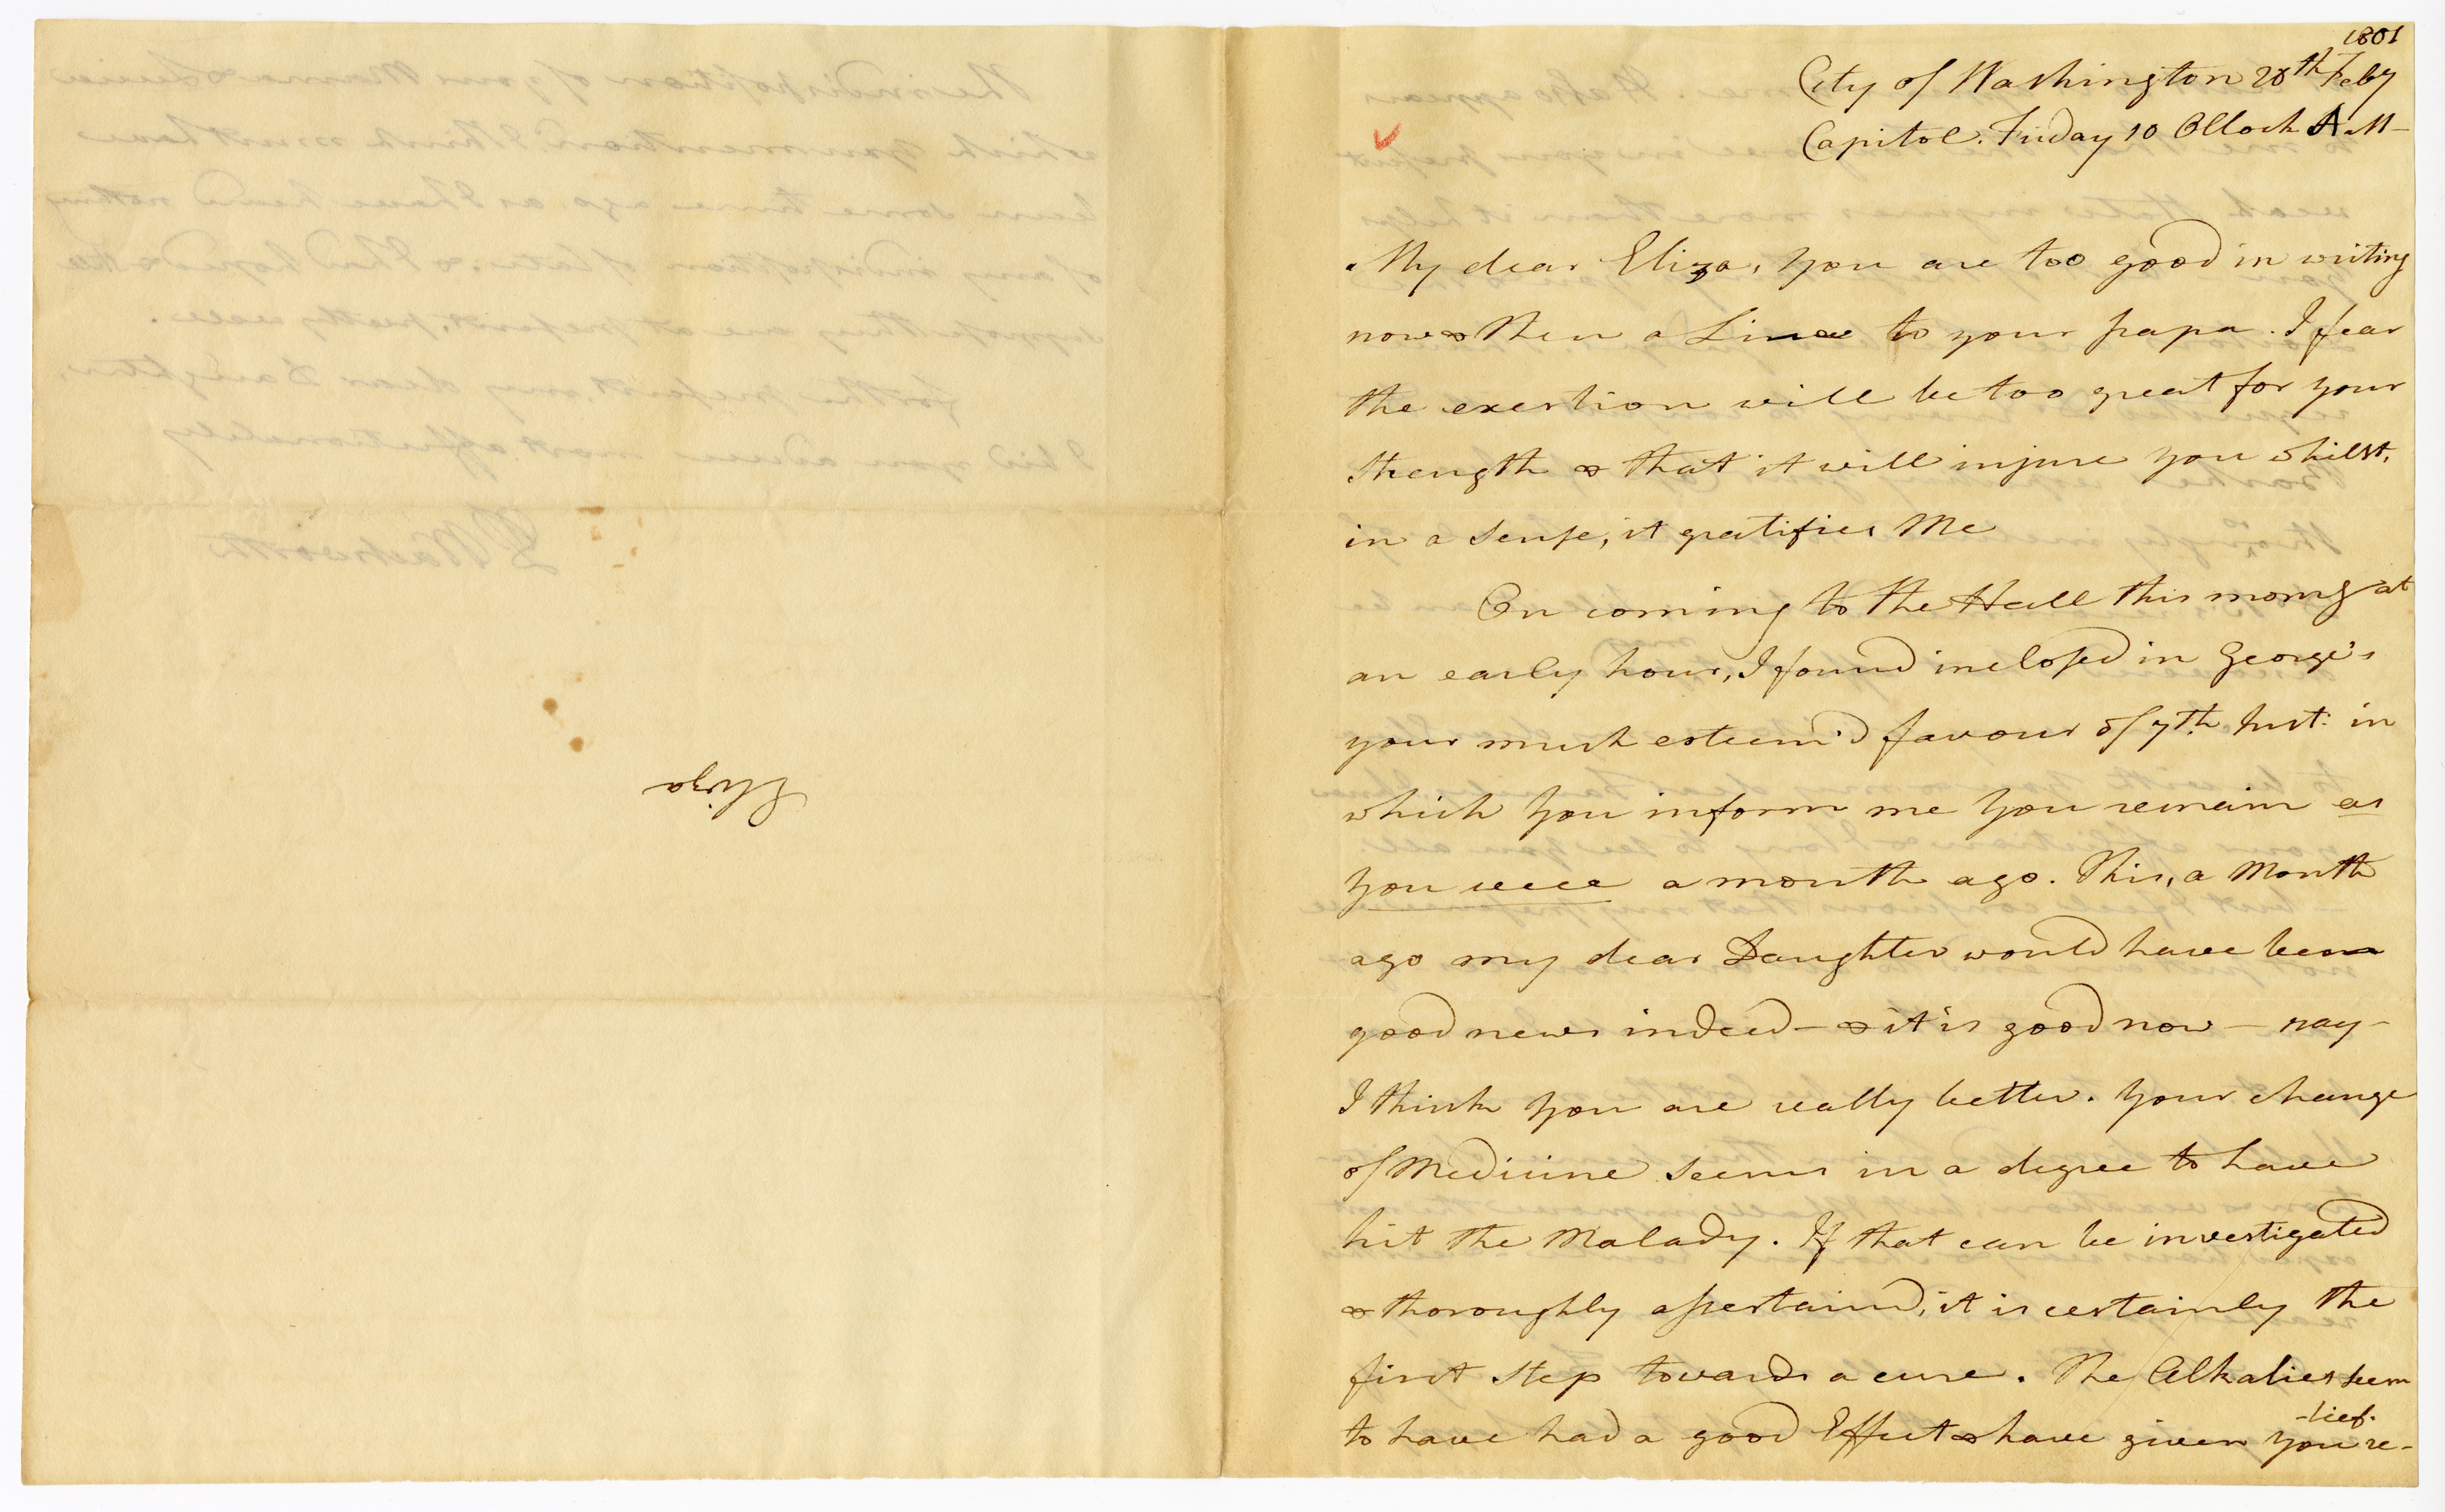 1801
City of Washington 20th Feby
Capitol. Friday 10 OClock A.M—
My dear Eliza, you are too good in writing
now & then a Line to your papa. I fear
the exertion will be too great for your
strength & that it will injure you whilst,
in a sense, it gratifies Me
On coming to the Hall this morng at
an early hour, I found inclosed in George's
your much esteem'd favour of 7th Inst: in
which you inform me you remain as
you were a month ago. This, a Month
ago my dear Daughter would have been
good news indeed — & it is good now — nay —
I think you are really better. Your change
of Medicine seems in a degree to have
hit the Malady. If that can be investigated
& thoroughly assertaind, it is certainly the
first step towards a cure. The Alkalies seem
to have had a good Effect & have given you re-
-lief.
Eliza